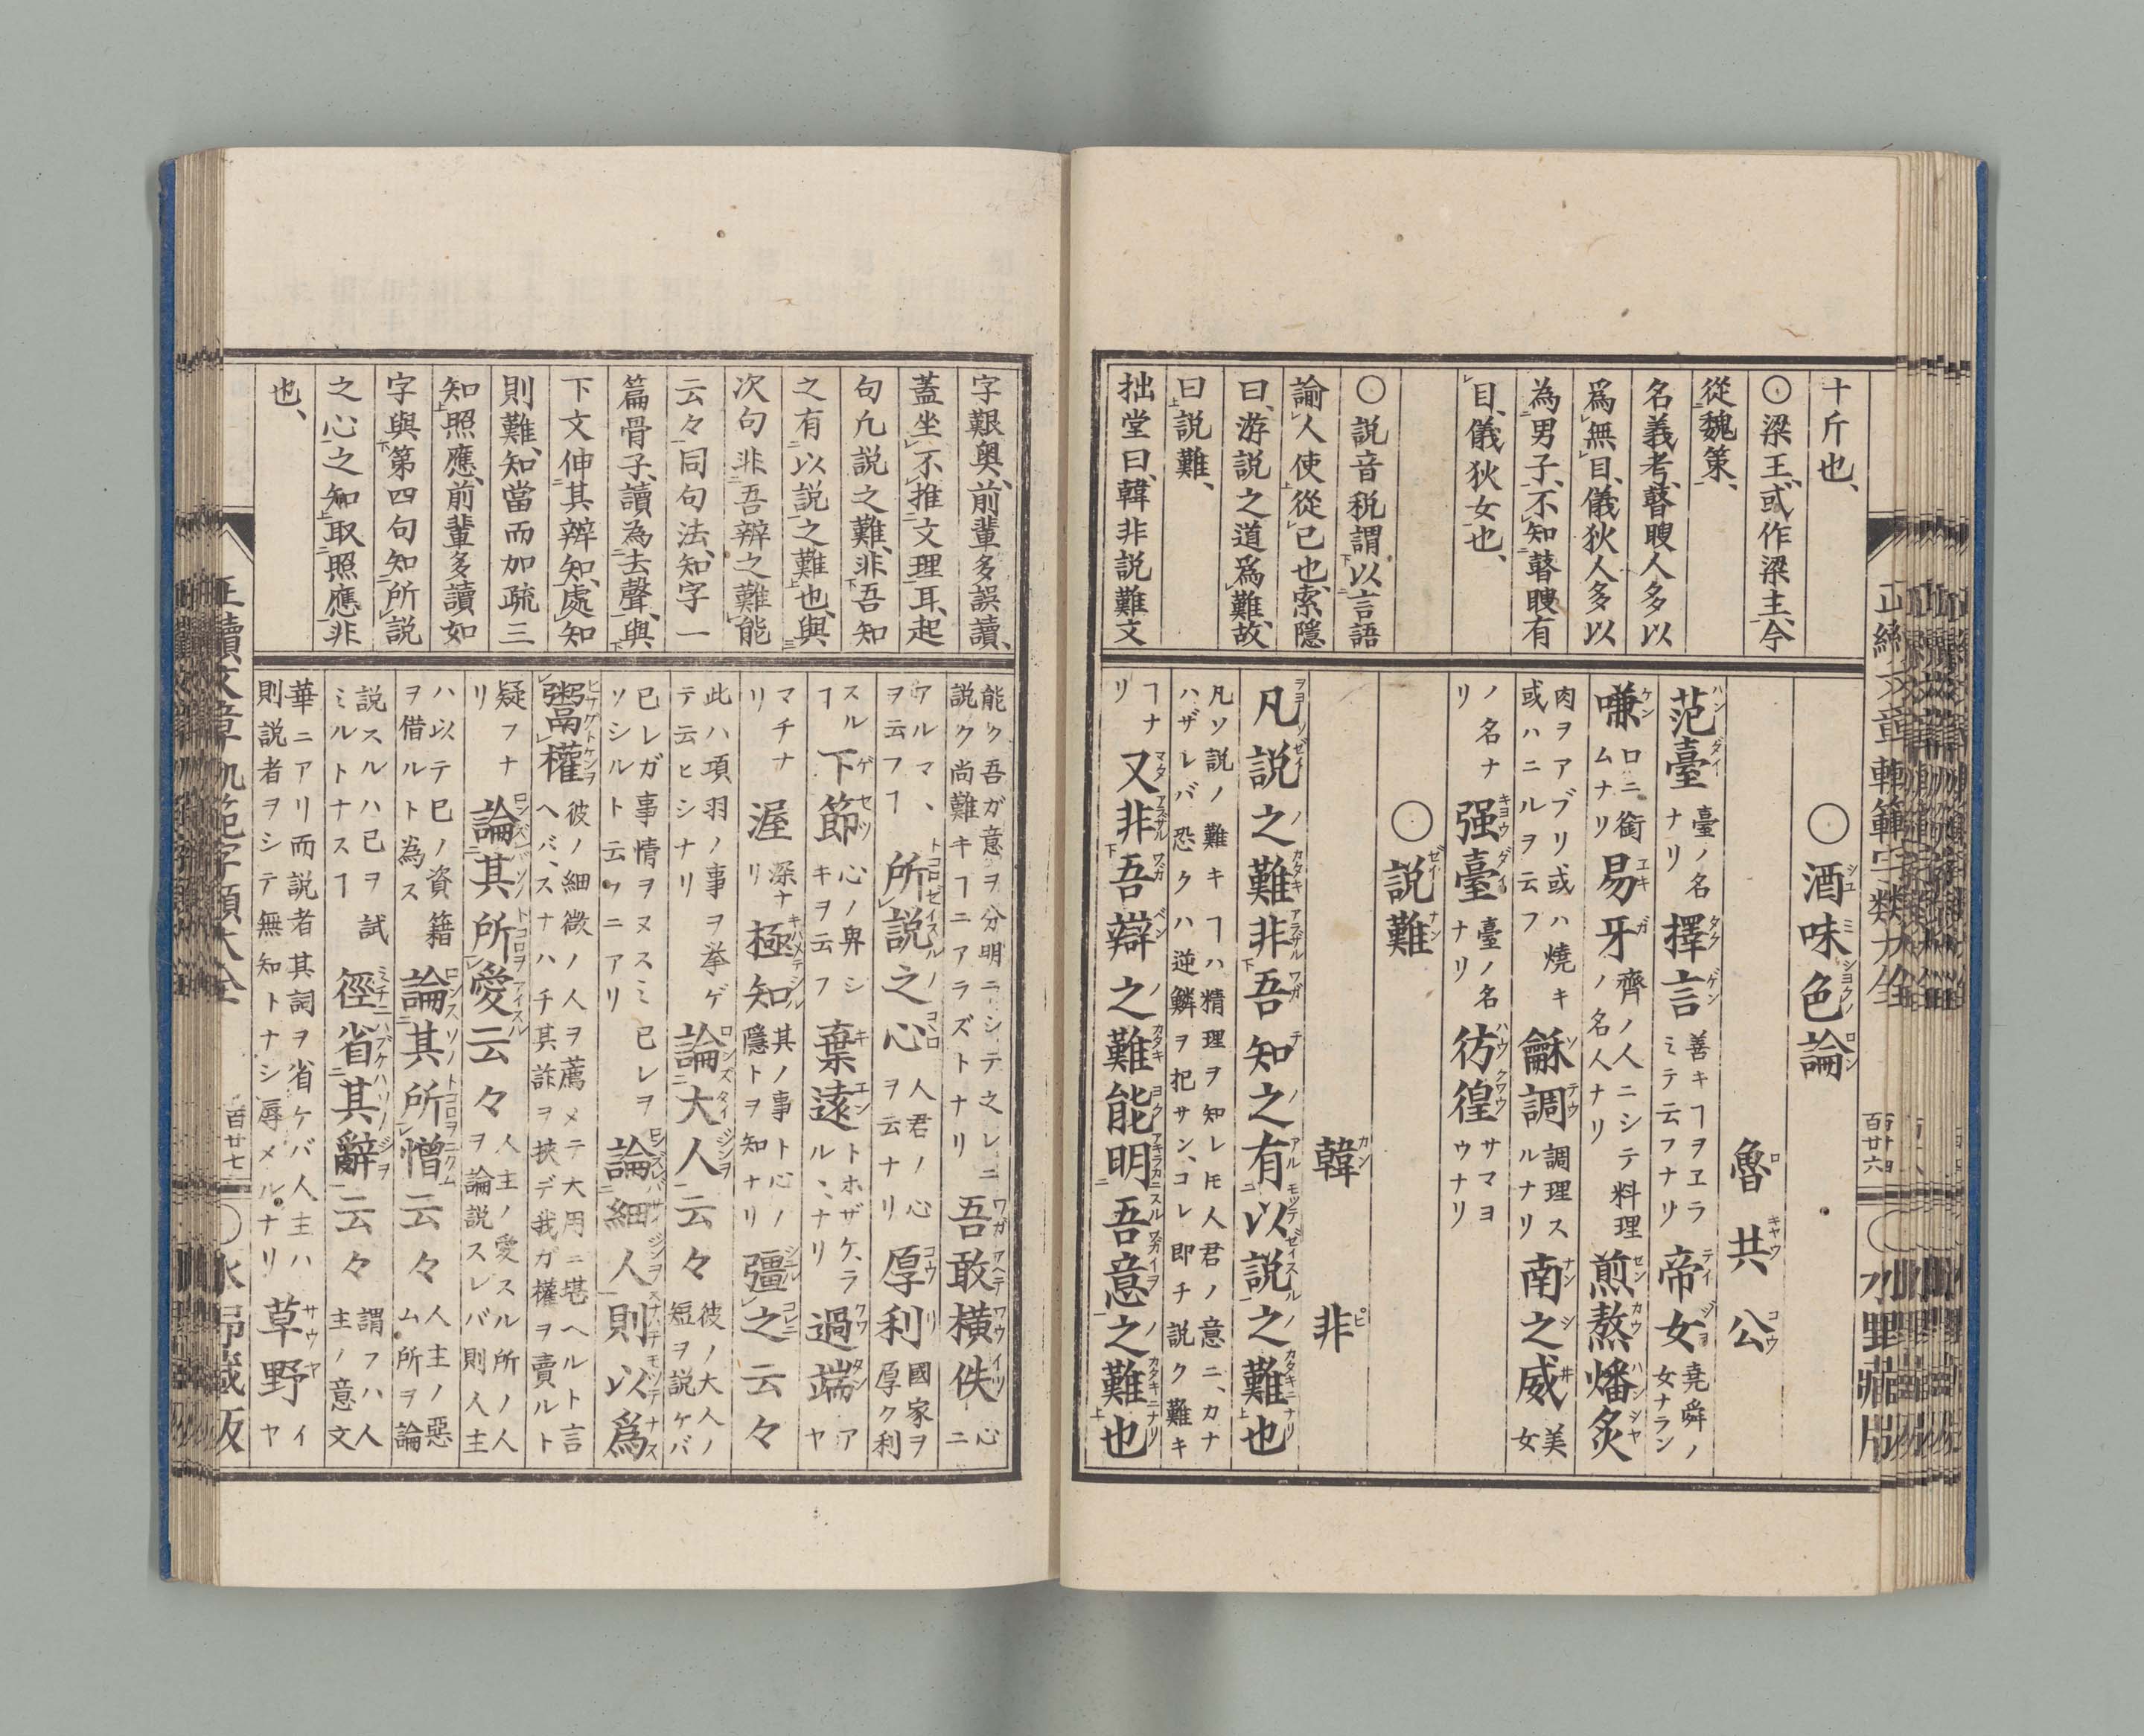 十斤也、
〇梁王、或作梁主、今
從魏策、
名義考、瞽瞍人多以
爲無目、儀狄人多以
為男子、不知瞽瞍有
目、儀狄女也、
〇説音税謂以言語
諭人使從己也、索隱
曰、游説之道爲難、故
曰説難、
拙堂曰、韓非説難文
〇酒味色論
魯共公
范臺 臺ノ名ナリ 擇言 善キヿヲヱラミテ云フナリ 帝女 堯舜ノ女ナラン
嗛 口ニ銜ムナリ 易牙 齊ノ人ニシテ料理ノ名人ナリ 煎熬燔炙
肉ヲアブリ或ハ燒キ或ハニルヲ云フ 龢調 調理スルナリ 南之威 美女
ノ名ナリ 强臺 臺ノ名ナリ 彷徨 サマヨウナリ
〇説難
韓非
凡説之難非吾知之有以説之難也
凡ソ説ノ難キヿハ精理ヲ知レ𪜈人君ノ意ニ、カナハザレバ恐クハ逆鱗ヲ犯サン、コレ即チ説ク難キ
ヿナリ 又非吾辯之難能明吾意之難也
字艱奥、前輩多誤讀、
蓋坐不推文理耳、起
句凡説之難、非吾知
之有以説之難也、與
次句非吾辯之難能
云々同句法、知字一
篇骨子、讀為去聲、與
下文伸其辨知、處知
則難、知當而加疏三
知照應、前輩多讀如
字與第四句知所説
之心之知取照應、非
也、
能ク吾ガ意ヲ分明ニシテ之レニ説ク尚難キヿニアラズトナリ 吾敢横佚 心ニ
アルマヽヲ云フヿ 所説之心 人君ノ心ヲ云ナリ 厚利 國家ヲ厚ク利
スルヿ 下節 心ノ卑シキヲ云フ 棄遠 トホザケ、ラルヽナリ 過端 アヤ
マチナリ 渥 深ナリ 極知 其ノ事ト心ノ隱トヲ知ナリ 彊之云々
此ハ項羽ノ事ヲ挙ゲテ云ヒシナリ 論大人云々 彼ノ大人ノ短ヲ説ケバ
己レガ事情ヲヌスミソシルト云フニアリ 己レヲ 論細人 則以爲
鬻權 彼ノ細微ノ人ヲ薦メテ大用ニ堪ヘルト言ヘバ、スナハチ其詐ヲ挾デ我ガ權ヲ賣ルト
疑フナリ 論其所愛云々 人主ノ愛スル所ノ人ヲ論説スレバ則人主
ハ以テ己ノ資籍ヲ借ルト為ス 論其所憎云々 人主ノ惡ム所ヲ論
説スルハ己ヲ試ミルトナスヿ 徑省其辭云々 謂フハ人主ノ意文
華ニアリ而説者其詞ヲ省ケバ人主ハ則説者ヲシテ無知トナシ辱メルナリ 草野 イヤ
百廿七